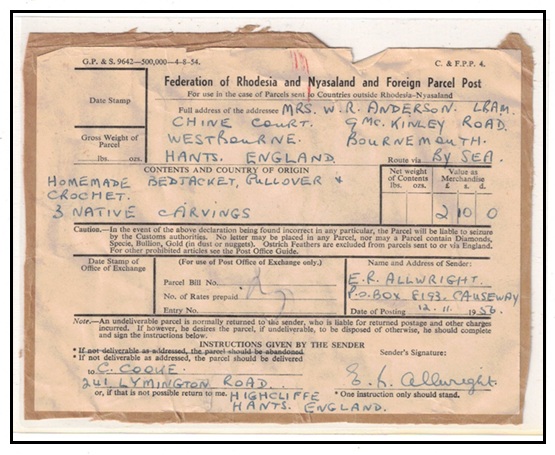 G.P. & S. 9642—500,000—4-8-54.
C. & F.P.P. 4.
Federation of Rhodesia and Nyasaland and Foreign Parcel Post
For use in the case of Parcels sent to Countries outside Rhodesia-Nyasaland
Date Stamp
Full address of the addressee MRS. W. R. ANDERSON. LRAM.
CHINE COURT. 9 MC. KINLEY ROAD.
Gross Weight of Parcel
WESTBOURNE. BOURNEMOUTH.
lbs. ozs.
HANTS. ENGLAND. Route via By SEA.
CONTENTS AND COUNTRY OF ORIGIN
Net weight of Contents
lbs. ozs.
Value as Merchandise
£ s. d.
HOMEMADE BEDJACKET, PULLOVER &
CROCHET.
3 NATIVE CARVINGS
2 10 0
Caution.—In the event of the above declaration being found incorrect in any particular, the Parcel will be liable to seizure
by the Customs authorities. No letter may be placed in any Parcel, nor may a Parcel contain Diamonds,
Specie, Bullion, Gold (in dust or nuggets). Ostrich Feathers are excluded from parcels sent to or via England.
For other prohibited articles see the Post Office Guide.
Date Stamp of
Office of Exchange
(For use of Post Office of Exchange only.)
Parcel Bill No.
No. of Rates prepaid
Entry No.
Name and Address of Sender:
E.R. ALLWRIGHT.
P.O. BOX 8193. CAUSEWAY
Date of Posting 12. 11. 1956.
Note.—An undeliverable parcel is normally returned to the sender, who is liable for returned postage and other charges
incurred. If however, he desires the parcel, if undeliverable, to be disposed of otherwise, he should complete
and sign the instructions below.
INSTRUCTIONS GIVEN BY THE SENDER
* If not deliverable as addressed, the parcel should be abandoned
* If not deliverable as addressed, the parcel should be delivered
Sender's Signature:
to C. COQUE.
241 LYMINGTON ROAD.
E. R. Allwright.
or, if that is not possible return to me. HIGHCLIFFE
* One instruction only should stand.
HANTS. ENGLAND.